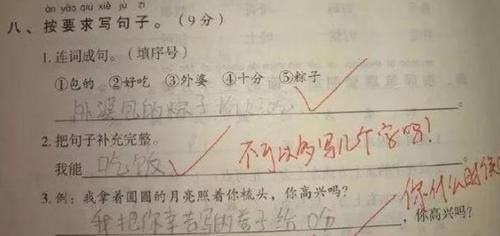 àn yào qiú xiě jù zi
八、按要求写句子。(9分)
1.连词成句。(填序号)
①包的 ②好吃 ③外婆 ④十分 ⑤粽子
外婆包的粽子十分好吃
2.把句子补充完整。
不可以多写几个字吗!
我能吃饭
你什么时候
3.例:我拿着圆圆的月亮照着你梳头,你高兴吗?
我把你辛苦写的 给 ,你高兴吗?